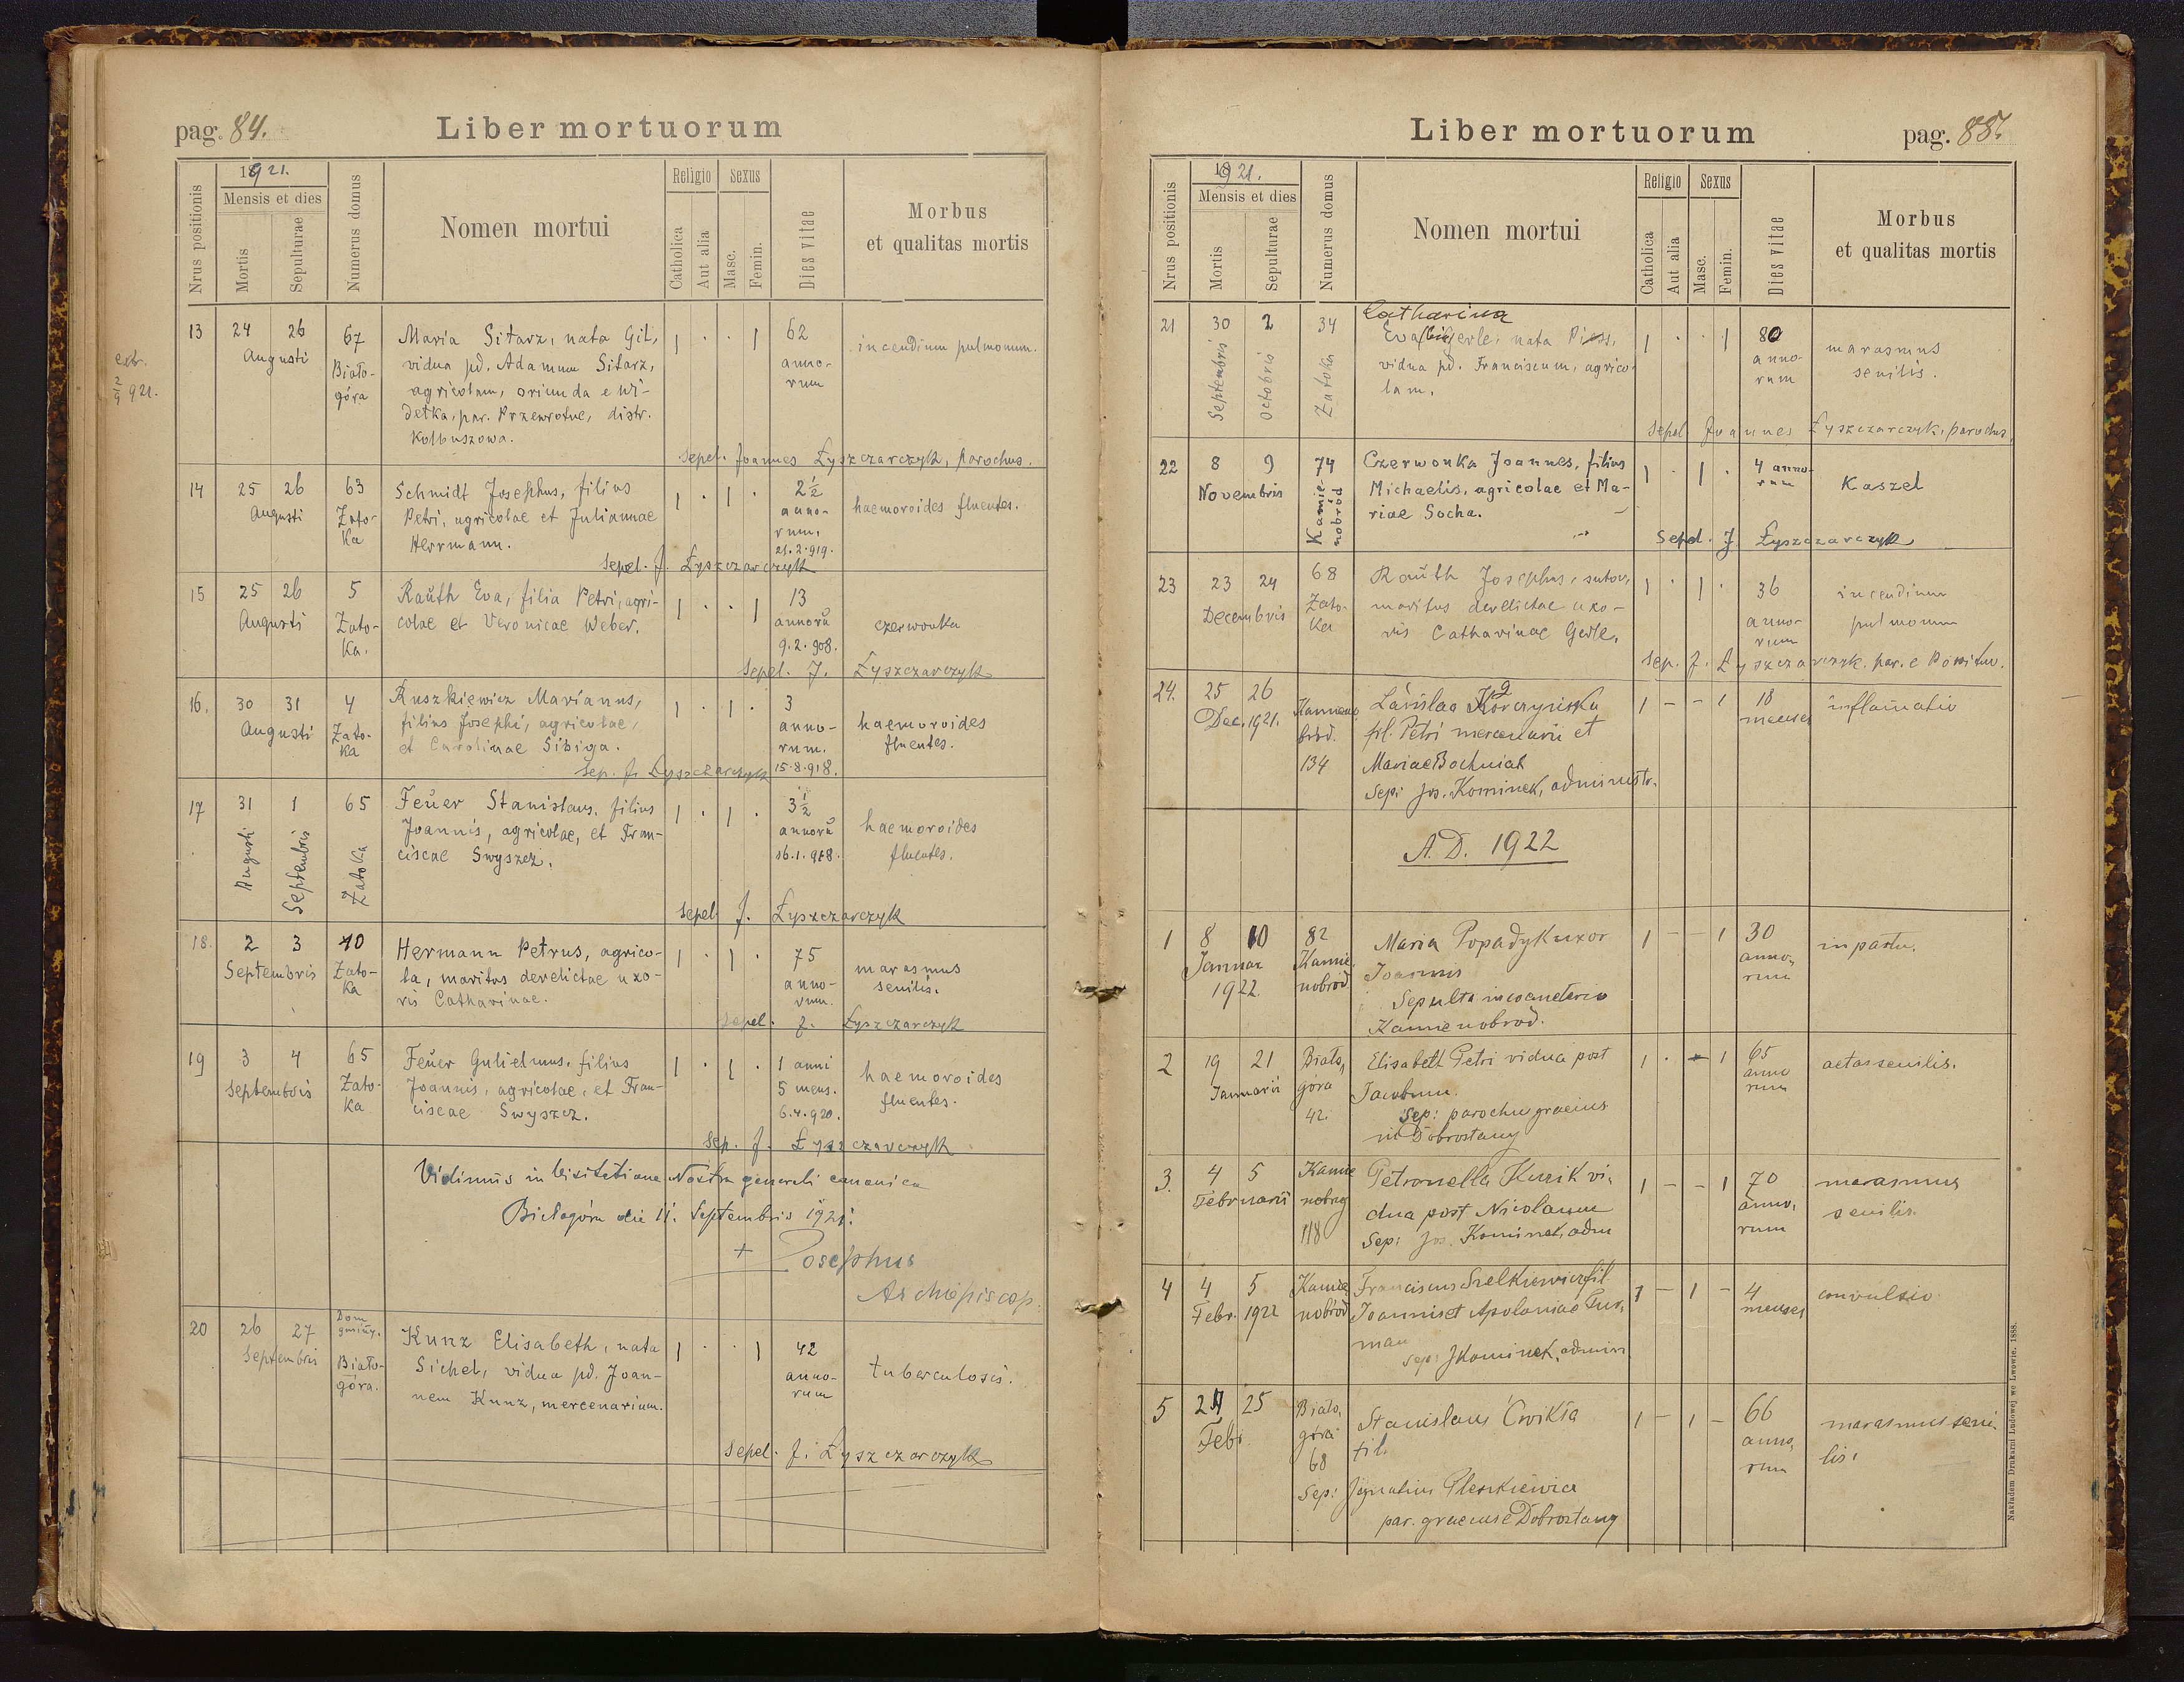 pag. 84.
Liber mortuorum
1921.
Nrus positionis
Mensis et dies
Mortis
Sepulturae
Numerus domus
Nomen mortui
Religio
Catholica
Aut alia
Sexus
Masc.
Femin.
Dies vitae
Morbus
et qualitas mortis
extr.
2/9 921.
13 24 26 67 Maria Sitarz, nata Gil, 1 . . 1 62 incendium pulmonum.
Augusti Biało- vidua pd. Adamum Sitarz, anno-
góra agricolam, oriunda e Wi- rum
detka, par. Przewrotne, distr.
Kolbuszowa.
Sepel. Joannes Łyszczarczyk, parochus.
14 25 26 63 Schmidt Josephus, filius 1 . 1 . 2½ haemoroides fluentes.
Augusti Zato- Petri, agricolae et Juliannae anno-
ka Herrmann. rum.
21.2.919.
Sepel. J. Łyszczarczyk
15 25 26 5 Rauth Eva, filia Petri, agri- 1 . . 1 13
Augusti Zato- colae et Veronicae Weber. annorū czerwonka
ka. 9.2.908.
Sepel. J. Łyszczarczyk
16. 30 31 4 Ruszkiewicz Marianus, 1 . 1 . 3
Augusti Zato- filius Josephi, agricolae, anno- haemoroides
ka et Carolinae Sibiga. rum. fluentes.
Sep. J. Łyszczarczyk 15.8.918.
17 31 1 65 Feuer Stanislaus, filius 1 . 1 . 3½
Augusti Septembris Zatoka Joannis, agricolae, et Fran- annorū haemoroides
ciscae Swyszcz. 16.1.918. fluentes.
Sepel J. Łyszczarczyk
18. 2 3 40 Hermann Petrus, agrico- 1 . 1 . 75
Septembris Zato- la, maritus derelictae uxo- anno- marasmus
ka ris Catharinae. rum. senilis.
Sepel. J. Łyszczarczyk
19 3 4 65 Feuer Gulielmus, filius 1 . 1 . 1 anni
Septembris Zato- Joannis, agricolae, et Fran- 5 mens. haemoroides
ka ciscae Swyszcz. 6.4.920. fluentes.
Sep. J. Łyszczarczyk
Vidimus in Visitatione Nostra generali canonica
Białogóra die 11. Septembris 1921.
+ Josephus
Archiepiscop.
20 26 27 Dom gminy. Kunz Elisabeth, nata 1 . . 1 42
Septembris Biało- Sichel, vidua pd. Joan- anno- tuberculosis.
góra. nem Kunz, mercenarium. rum
Sepel. J. Łyszczarczyk
Liber mortuorum
pag. 85.
1921.
Nrus positionis
Mensis et dies
Mortis
Sepulturae
Numerus domus
Nomen mortui
Religio
Catholica
Aut alia
Sexus
Masc.
Femin.
Dies vitae
Morbus
et qualitas mortis
Catharina
21 30 2 34 Eva Gerle, nata Piess, 1 . . 1 80
Septembris Octobris Zatoka vidua pd. Franciscum, agrico- anno- marasmus
lam. rum senilis.
Sepel Joannes Łyszczarczyk, parochus.
22 8 9 74 Czerwonka Joannes, filius 1 . 1 . 4 anno-
Novembris Kamie- Michaelis, agricolae et Ma- rum Kaszel
nobród riae Socha.
Sepel. J. Łyszczarczyk
23 23 24 68 Rauth Josephus, sutor, 1 . 1 . 36 incendium
Decembris Zato- maritus derelictae uxo- anno- pulmonum
ka ris Catharinae Gerle. rum
Sep. J. Łyszczarczyk. par.
24. 25 26 Kamieno Ladislaa 1 - - 1 18 inflamatio
Dec. 1921. bród. fil. Petri mercenarii et menses
134 Mariae Bochniak
Sep: Jos. Kominek, administr.
A.D. 1922
1 8 10 82 Maria Popadyk uxor 1 - - 1 30 in partu.
Januar Kamie Joannis anno,
1922. nobród Sepulta in coemeterio rum
Kamienobrod.
2 19 21 Biało, Elisabeth Petri vidua post 1 . - 1 65 aetas senilis.
Januarii góra Jacobum. anno
42. Sep: parochus graecus rum
in Dobrostany
3. 4 5 Kamie Petronella Kuzik vi, 1 - - 1 70 marasmus
Februarii nobrog dua post Nicolaum anno, senilis.
118 Sep: Jos. Kominek, adm rum
4 4 5 Kamie Franciscus Szelkiewicz fil. 1 - 1 - 4 convulsio.
Febr. 1922 nobród Joannis et Apoloniae Gur, menses
man
Sep: J Kominek, admin
5 24 25 Biało, Stanislaus Ćwikła 1 - 1 - 66 marasmus seni
Febr. góra fil. anno, lis.
68 rum
Sep: Ignatius Pleszkiewicz
par. graecus e Dobrostany
Nakładem Drukarni Ludowej we Lwowie. 1888.